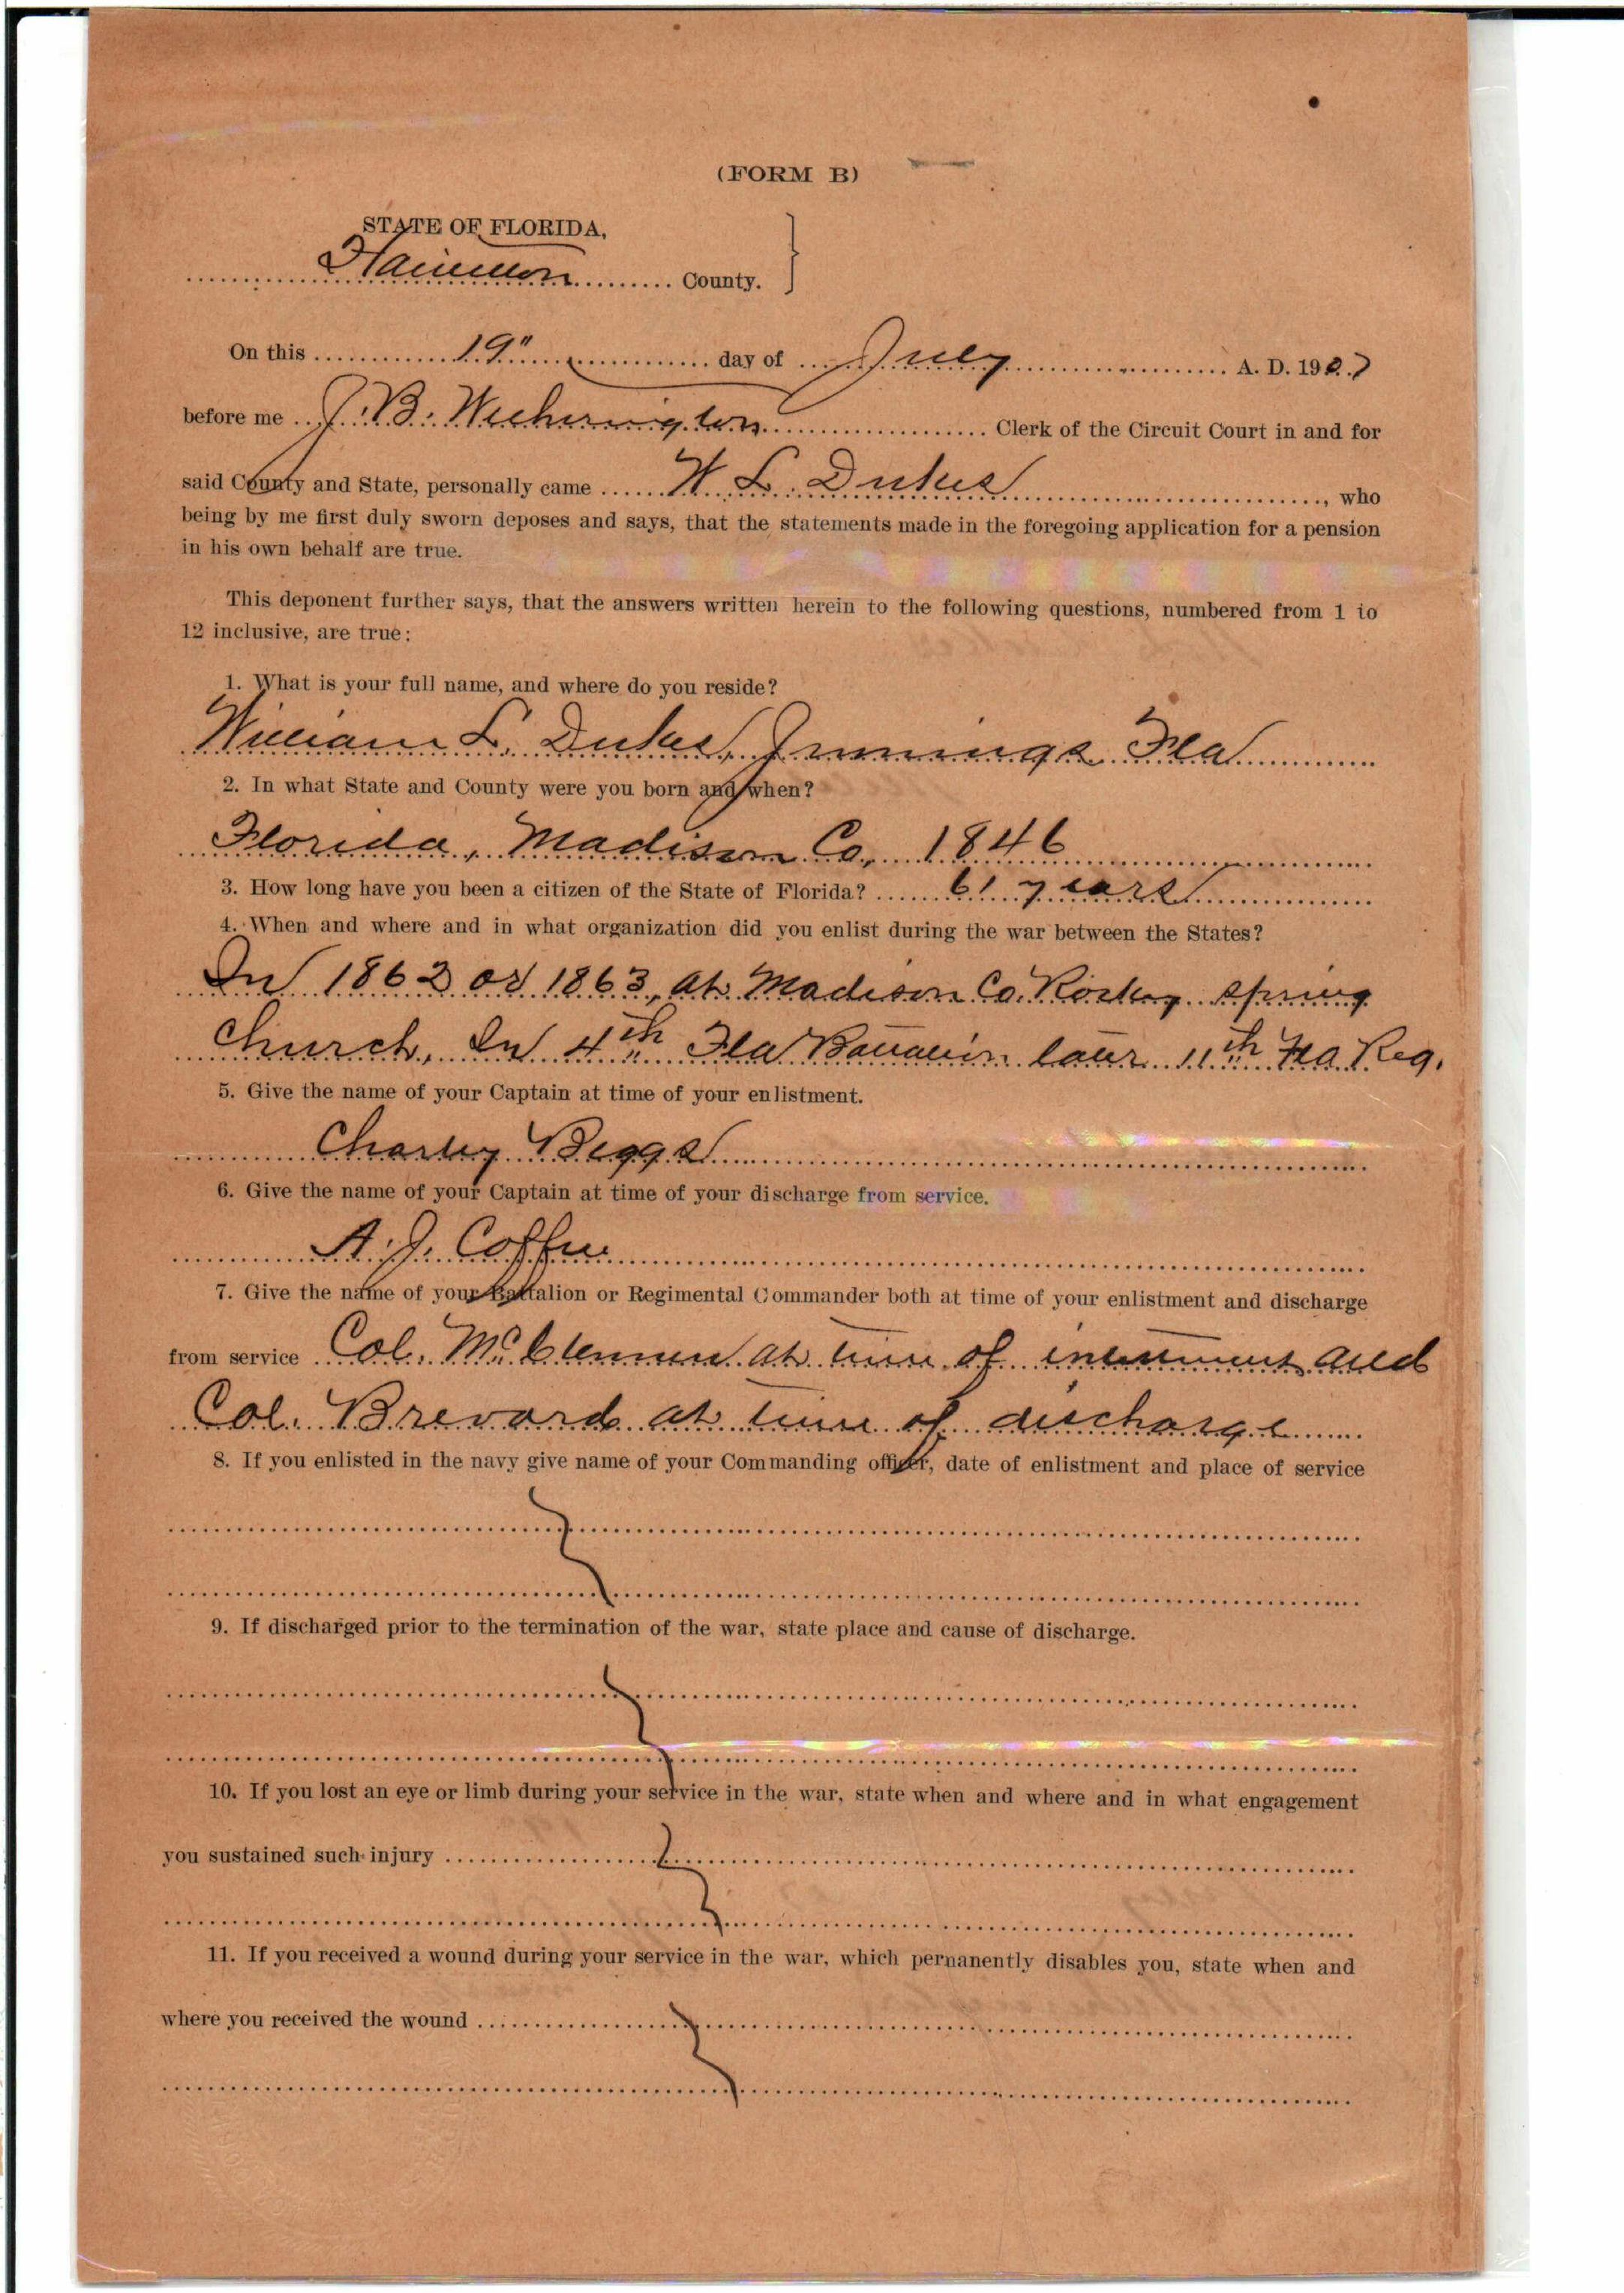 (FORM B)
STATE OF FLORIDA,
Hamilton County.
On this 19" day of July A. D. 1907
before me J. B. Witherington Clerk of the Circuit Court in and for
said County and State, personally came W. L. Dukes, who
being by me first duly sworn deposes and says, that the statements made in the foregoing application for a pension
in his own behalf are true.
This deponent further says, that the answers written herein to the following questions, numbered from 1 to
12 inclusive, are true:
1. What is your full name, and where do you reside?
William L. Dukes, Jennings Fla
2. In what State and County were you born and when?
Florida, Madison Co, 1846
3. How long have you been a citizen of the State of Florida? 61 years
4. When and where and in what organization did you enlist during the war between the States?
In 1862 or 1863, at Madison Co. Rocky spring
Church, In 4th Fla Battalion later 11th Fla Reg.
5. Give the name of your Captain at time of your enlistment.
Charley Beggs
6. Give the name of your Captain at time of your discharge from service.
A. J. Coffee
7. Give the name of your Battalion or Regimental Commander both at time of your enlistment and discharge
from service Col. at time of and
Col. Brevard at time of discharge
8. If you enlisted in the navy give name of your Commanding officer, date of enlistment and place of service
9. If discharged prior to the termination of the war, state place and cause of discharge.
10. If you lost an eye or limb during your service in the war, state when and where and in what engagement
you sustained such injury
11. If you received a wound during your service in the war, which permanently disables you, state when and
where you received the wound